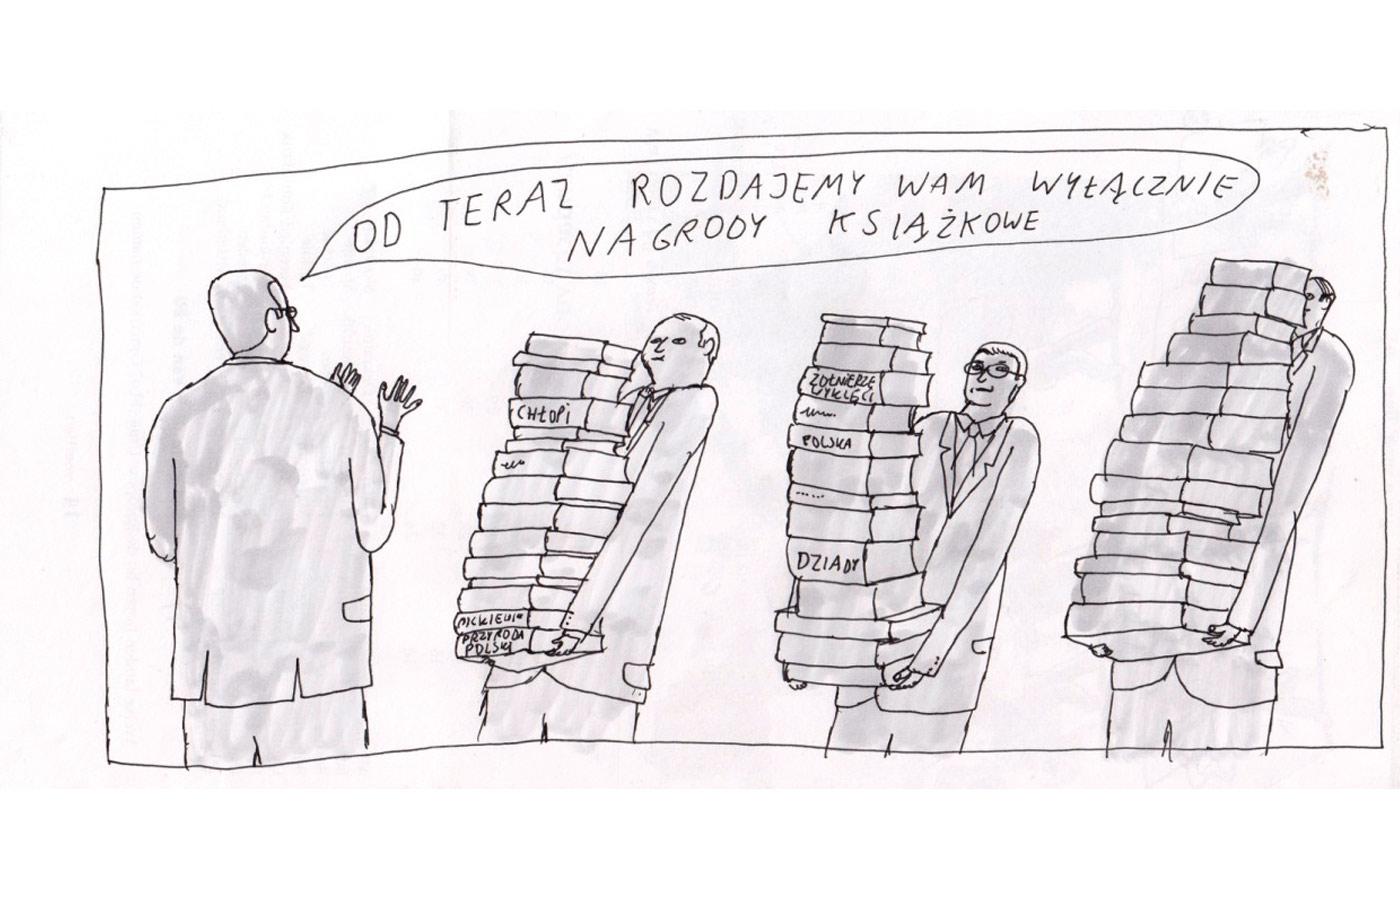 OD TERAZ ROZDAJEMY WAM WYŁĄCZNIE
NAGRODY KSIĄŻKOWE
CHŁOPI
PRZYRODA
POLSKA
ŻOŁNIERZE
WYKLĘCI
POLSKA
DZIADY